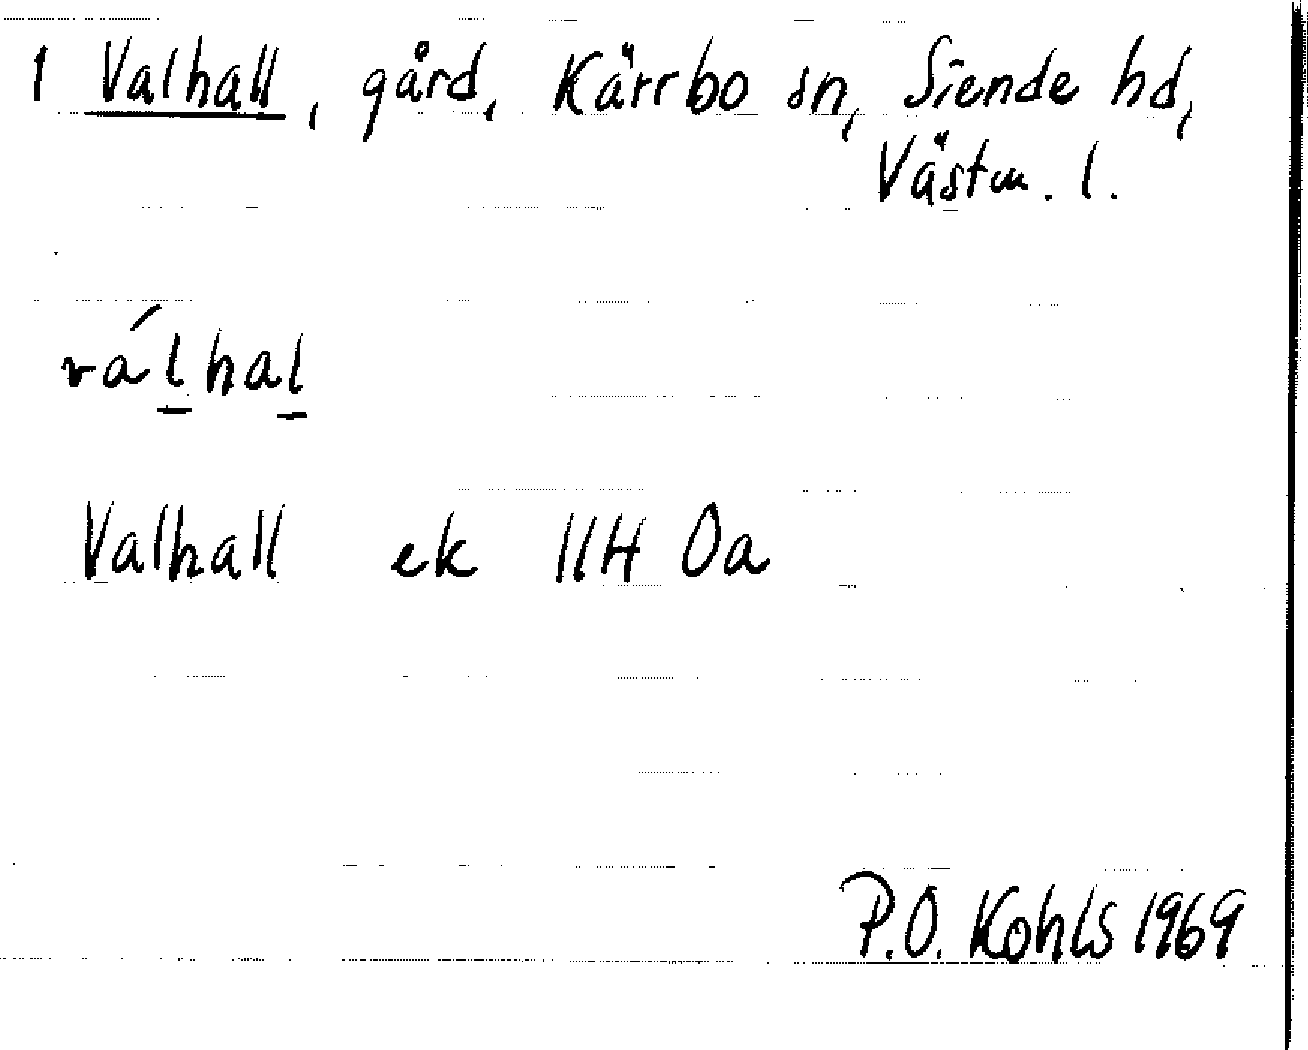 1 Valhall, gård, Kärrbo sn, Siende hd,
Västm. l.
válhal
Valhall ek 11H 0a
P.O. Kohls 1969